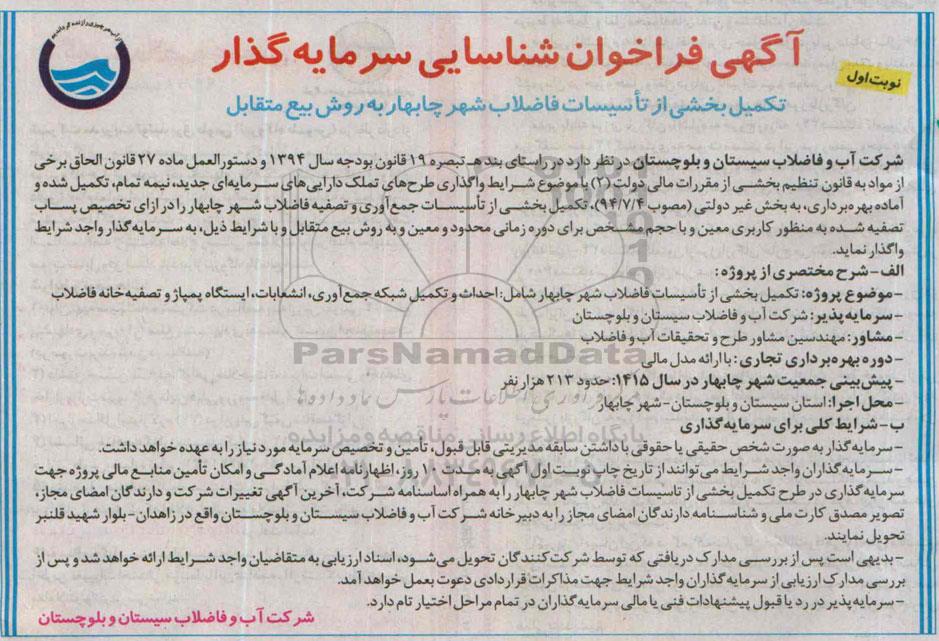 از آب هر چیزی را زنده گرداندیم
آگهی فراخوان شناسایی سرمایه گذار
نوبت اول
تکمیل بخشی از تأسیسات فاضلاب شهر چابهار به روش بیع متقابل
شرکت آب و فاضلاب سیستان و بلوچستان در نظر دارد در راستای بند هـ تبصره ۱۹ قانون بودجه سال ۱۳۹۴ و دستورالعمل ماده ۲۷ قانون الحاق برخی
از مواد به قانون تنظیم بخشی از مقررات مالی دولت (۲) با موضوع شرایط واگذاری طرح‌های تملک دارایی‌های سرمایه‌ای جدید، نیمه تمام، تکمیل شده و
آماده بهره‌برداری، به بخش غیر دولتی (مصوب ۹۴/۷/۴)، تکمیل بخشی از تأسیسات جمع‌آوری و تصفیه فاضلاب شهر چابهار را در ازای تخصیص پساب
تصفیه شده به منظور کاربری معین و با حجم مشخص برای دوره زمانی محدود و معین و به روش بیع متقابل و با شرایط ذیل، به سرمایه‌گذار واجد شرایط
واگذار نماید.
الف- شرح مختصری از پروژه:
-موضوع پروژه: تکمیل بخشی از تأسیسات فاضلاب شهر چابهار شامل: احداث و تکمیل شبکه جمع‌آوری، انشعابات، ایستگاه پمپاژ و تصفیه‌خانه فاضلاب
-سرمایه‌پذیر: شرکت آب و فاضلاب سیستان و بلوچستان
-مشاور: مهندسین مشاور طرح و تحقیقات آب و فاضلاب
-دوره بهره‌برداری تجاری: با ارائه مدل مالی
- پیش‌بینی جمعیت شهر چابهار در سال ۱۴۱۵: حدود ۲۱۳ هزار نفر
-محل اجرا: استان سیستان و بلوچستان-شهر چابهار
ب- شرایط کلی برای سرمایه‌گذاری
-سرمایه‌گذار به صورت شخص حقیقی یا حقوقی با داشتن سابقه مدیریتی قابل قبول، تأمین و تخصیص سرمایه مورد نیاز را به عهده خواهد داشت.
-سرمایه‌گذاران واجد شرایط می‌توانند از تاریخ چاپ نوبت اول آگهی به مدت ۱۰ روز، اظهارنامه اعلام آمادگی و امکان تأمین منابع مالی پروژه جهت
سرمایه‌گذاری در طرح تکمیل بخشی از تاسیسات فاضلاب شهر چابهار را به همراه اساسنامه شرکت، آخرین آگهی تغییرات شرکت و دارندگان امضای مجاز،
تصویر مصدق کارت ملی و شناسنامه دارندگان امضای مجاز را به دبیرخانه شرکت آب و فاضلاب سیستان و بلوچستان واقع در زاهدان-بلوار شهید قلنبر
تحویل نمایند.
-بدیهی است پس از بررسی مدارک دریافتی که توسط شرکت کنندگان تحویل می‌شود، اسناد ارزیابی به متقاضیان واجد شرایط ارائه خواهد شد و پس از
بررسی مدارک ارزیابی از سرمایه‌گذاران واجد شرایط جهت مذاکرات قراردادی دعوت بعمل خواهد آمد.
-سرمایه‌پذیر در رد یا قبول پیشنهادات فنی یا مالی سرمایه‌گذاران در تمام مراحل اختیار تام دارد.
شرکت آب و فاضلاب سیستان و بلوچستان
ParsNamadData
پایگاه اطلاع رسانی مناقصه و مزایده